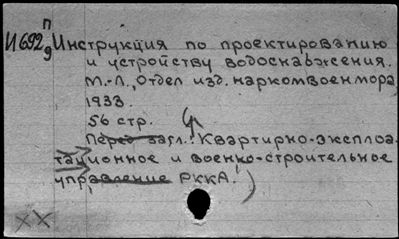 п
И 692 Инструкция по проектированию
9
и устройству водоснабжения.
М.-Л., Отдел изд. наркомвоенмора
1933.
56 стр.
Перед загл.: Квартирно-эксплоа-
тационное и военно-строительное
управление РККА.)
XX